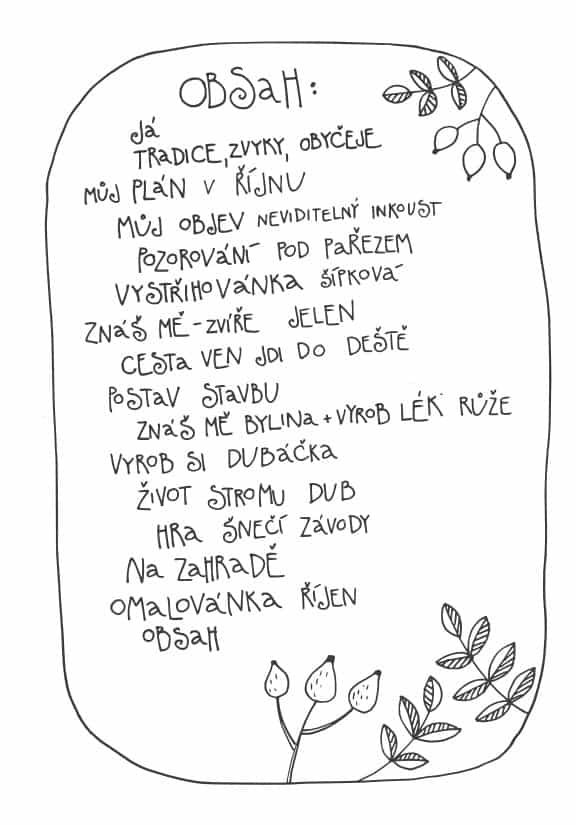 OBSAH:
JÁ
TRADICE, ZVYKY, OBYČEJE
MŮJ PLÁN V ŘÍJNU
MŮJ OBJEV NEVIDITELNÝ INKOUST
POZOROVÁNÍ POD PAŘEZEM
VYSTŘIHOVÁNKA ŠÍPKOVÁ
ZNÁŠ MĚ - ZVÍŘE JELEN
CESTA VEN JDI DO DEŠTĚ
POSTAV STAVBU
ZNÁŠ MĚ BYLINA + VÝROB LÉK RŮŽE
VYROB SI DUBÁČKA
ŽIVOT STROMU DUB
HRA ŠNEČÍ ZÁVODY
NA ZAHRADĚ
OMALOVÁNKA ŘÍJEN
OBSAH